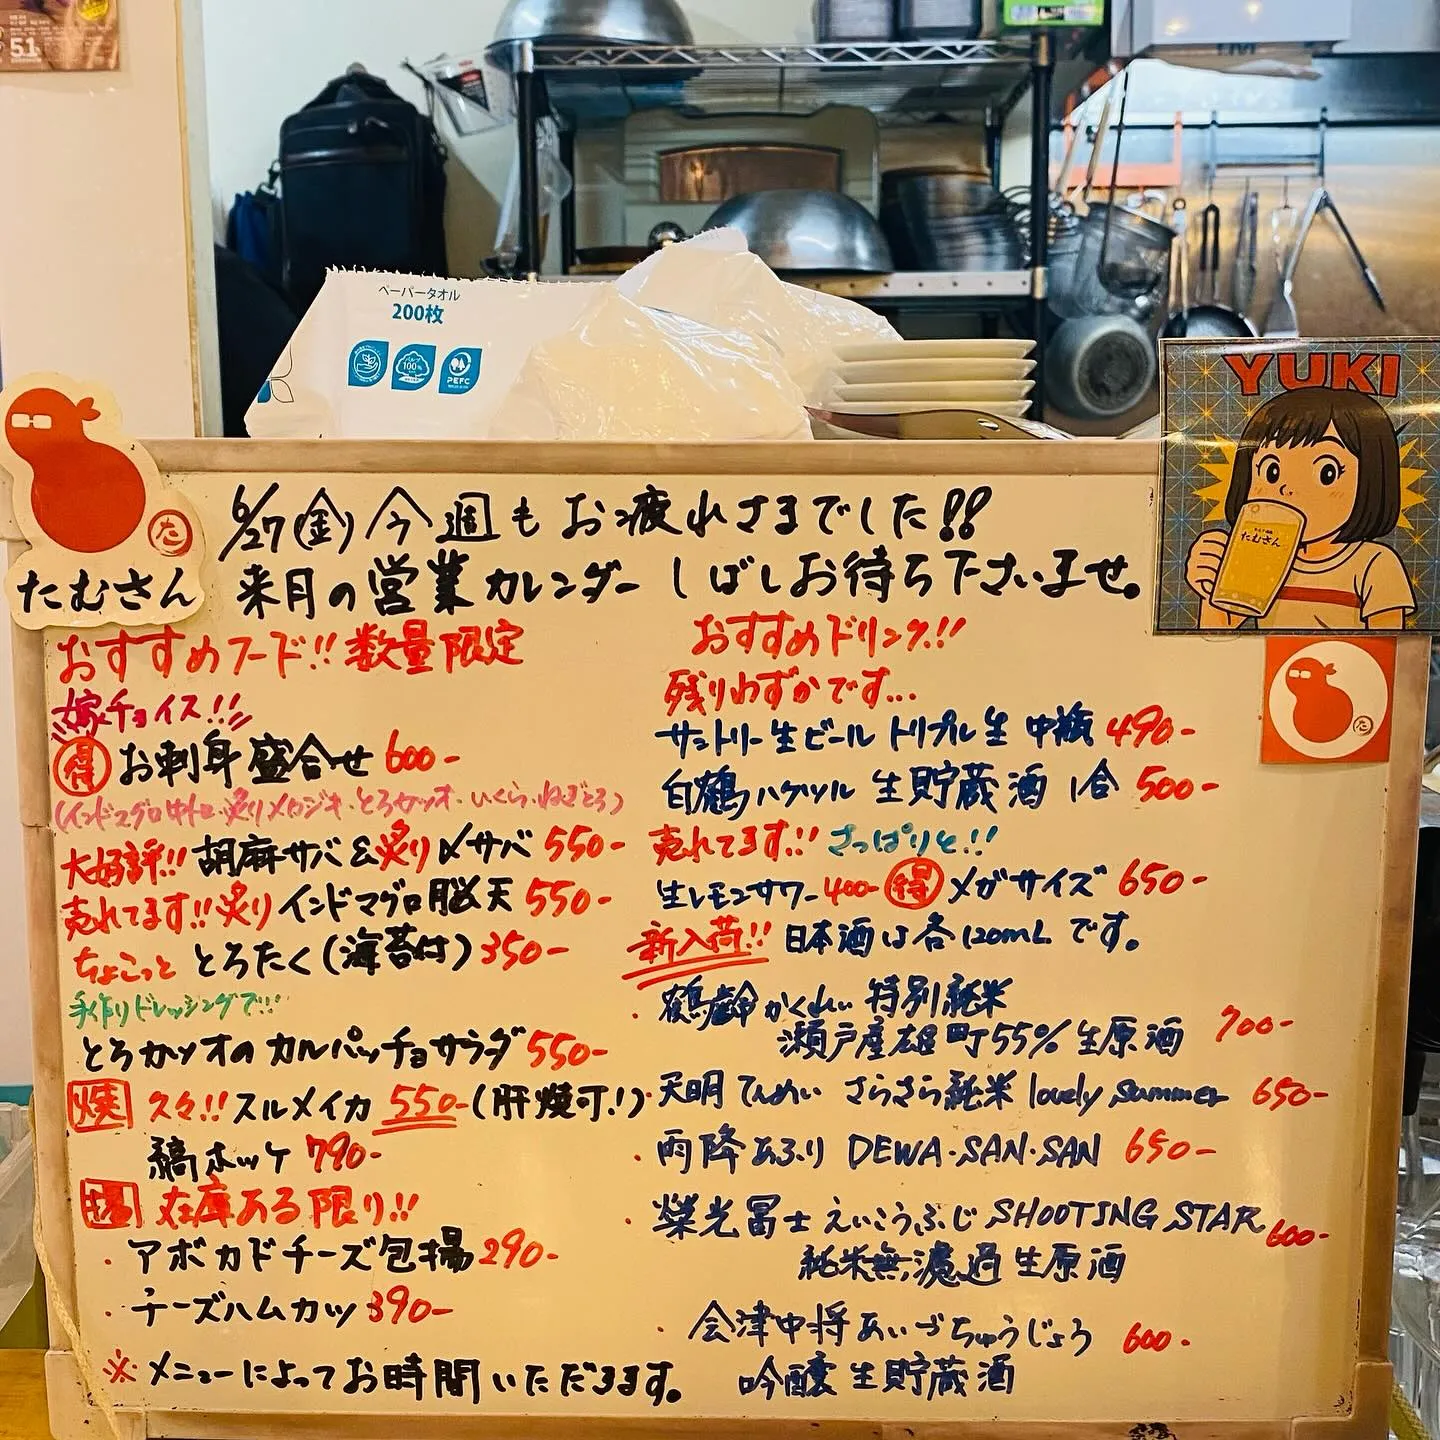 51
ペーパータオル
200枚
パルプ
100%
PEFC
YUKI
たむさん
た
たむさん
6/27(金)今週もお疲れさまでした!!
来月の営業カレンダーしばしお待ち下さいませ。
おすすめフード!!数量限定
嫁チョイス!!
得 お刺身盛合せ 600-
(インドマグロ中トロ・炙りメロジキ・とろカツオ・いくら・ねぎとろ)
大好評!! 胡麻サバ&炙り〆サバ 550-
売れてます!! 炙りインドマグロ脳天 550-
ちょこっと とろたく(海苔付) 350-
手作りドレッシングで!!
とろカツオのカルパッチョサラダ 550-
焼 久々!! スルメイカ 550-(肝焼可!)
縞ホッケ 790-
揚 在庫ある限り!!
・アボカドチーズ包揚 290-
・チーズハムカツ 390-
※メニューによってお時間いただきます。
おすすめドリンク!!
残りわずかです...
サントリー生ビール トリプル生 中瓶 490-
白鶴ハクツル 生貯蔵酒 1合 500-
売れてます!! さっぱりと!!
生レモンサワー 400- 得 メガサイズ 650-
新入荷!! 日本酒は各120mLです。
・鶴齢かくれい 特別純米
瀬戸産雄町55%生原酒 700-
・天明てんめい さらさら純米 lovely summer 650-
・雨降あふり DEWA・SAN・SAN 650-
・榮光冨士えいこうふじ SHOOTING STAR 600-
純米無濾過生原酒
・会津中将あいづちゅうじょう 600-
吟醸生貯蔵酒
た